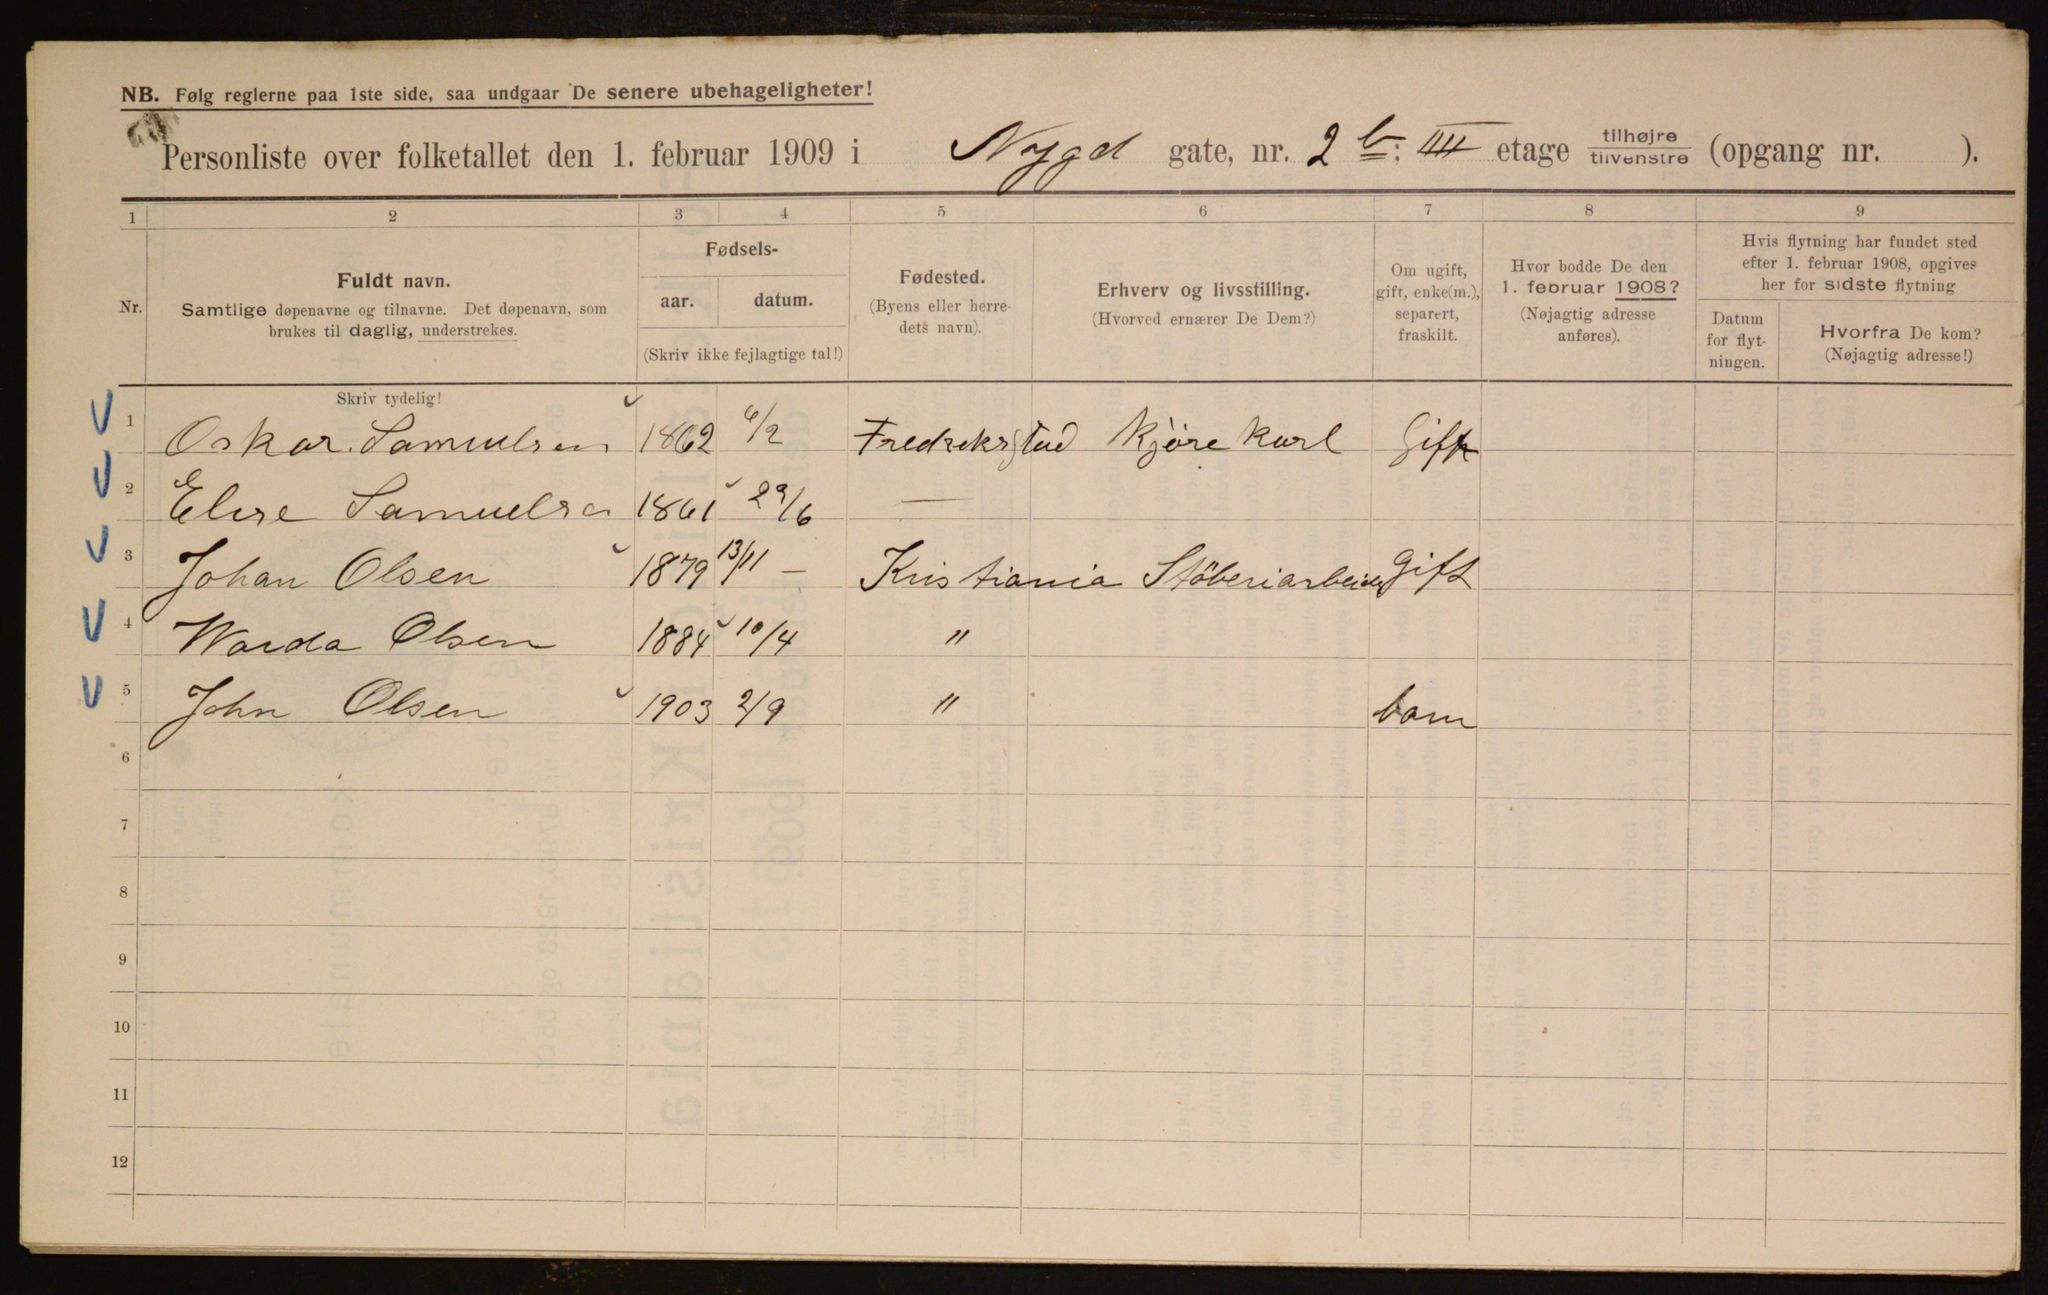 NB. Følg reglerne paa 1ste side, saa undgaar De senere ubehageligheter!
Personliste over folketallet den 1. februar 1909 i Nygd gate, nr. 2 b; III etage tilhøjre / tilvenstre (opgang nr. ).
1 2 3 4 5 6 7 8 9
Nr.
Fuldt navn.
Samtlige døpenavne og tilnavne. Det døpenavn, som
brukes til daglig, understrekes.
Fødsels-
aar. datum.
(Skriv ikke fejlagtige tal!)
Fødested.
(Byens eller herre-
dets navn).
Erhverv og livsstilling.
(Hvorved ernærer De Dem?)
Om ugift,
gift, enke(m.),
separert,
fraskilt.
Hvor bodde De den
1. februar 1908?
(Nøjagtig adresse
anføres).
Hvis flytning har fundet sted
efter 1. februar 1908, opgives
her for sidste flytning
Datum
for flyt-
ningen.
Hvorfra De kom?
(Nøjagtig adresse!)
Skriv tydelig!
1 Oskar Samuelsen 1862 6/2 Fredrekstad Kjørekarl Gift
2 Elise Samuelsen 1861 29/6 —
3 Johan Olsen 1879 13/11 — Kristiania Støberiarbeider Gift
4 Warda Olsen 1884 10/4 "
5 John Olsen 1903 2/9 " barn
6
7
8
9
10
11
12